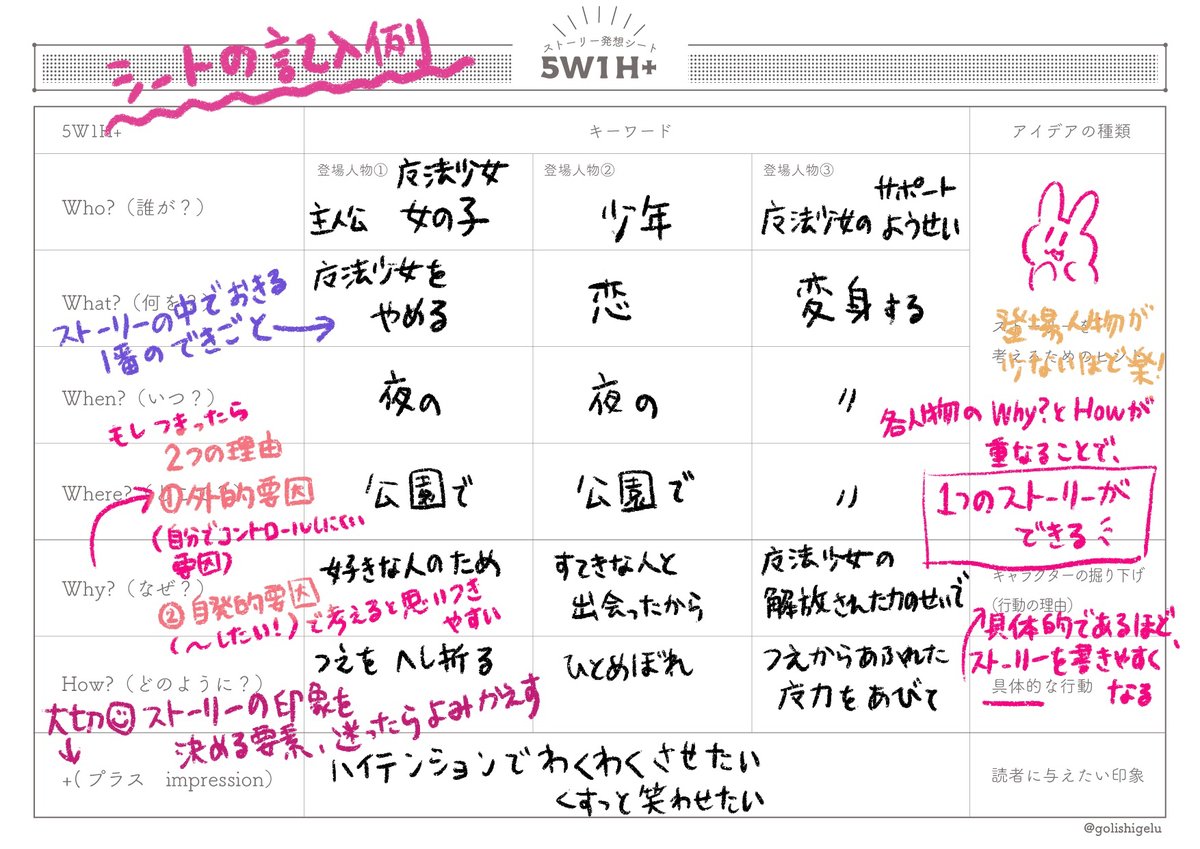 シートの記入例
ストーリー発想シート
5W1H+
5W1H+
キーワード
アイデアの種類
Who?（誰が？）
登場人物①
魔法少女
主人公 女の子
登場人物②
少年
登場人物③
サポート
魔法少女の ようせい
What?（何を？）
ストーリーの中でおきる
1番のできごと
魔法少女を
やめる
恋
変身する
ストーリーを
考えるためのヒント
登場人物が
少ないほど楽!
When?（いつ？）
夜の
夜の
〃
各人物のWhy?とHowが
重なることで、
1つのストーリーが
できる
もしつまったら
2つの理由
①外的要因
(自分でコントロールしにくい
要因)
Where?
公園で
公園で
〃
Why?（なぜ？）
②自発的要因
(〜したい!)で考えると思いつき
やすい
好きな人のため
すてきな人と
出会ったから
魔法少女の
解放された力のせいで
キャラクターの掘り下げ
(行動の理由)
具体的であるほど、
ストーリーを書きやすく
なる
How?（どのように？）
つえを へし折る
ひとめぼれ
つえからあふれた
魔力をあびて
具体的な行動
大切 ストーリーの印象を
決める要素、迷ったらよみかえす
+(プラス impression)
ハイテンションでわくわくさせたい
くすっと笑わせたい
読者に与えたい印象
@golishigelu